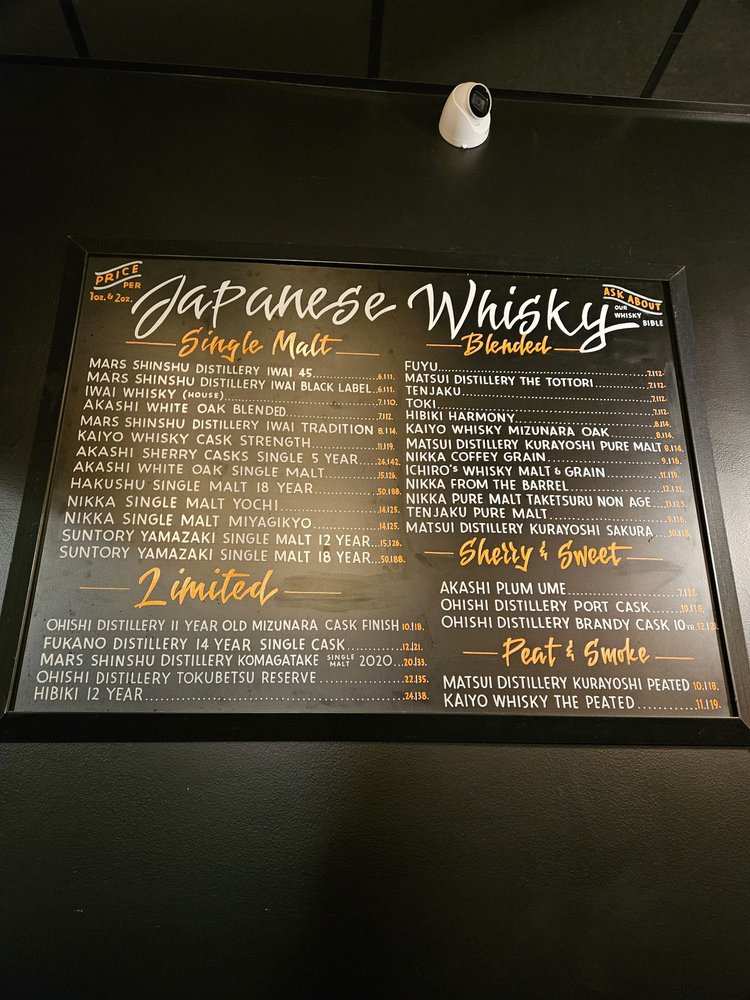 PRICE
PER
1oz. & 2oz.
Japanese Whisky
ASK ABOUT
OUR
WHISKY
BIBLE
Single Malt
MARS SHINSHU DISTILLERY IWAI 45......6.|11.
MARS SHINSHU DISTILLERY IWAI BLACK LABEL...6.|11.
IWAI WHISKY (HOUSE)......7.|10.
AKASHI WHITE OAK BLENDED......7.|12.
MARS SHINSHU DISTILLERY IWAI TRADITION 8.|14.
KAIYO WHISKY CASK STRENGTH......11.|19.
AKASHI SHERRY CASKS SINGLE 5 YEAR...24.|42.
AKASHI WHITE OAK SINGLE MALT......15.|26.
HAKUSHU SINGLE MALT 18 YEAR......50.|88.
NIKKA SINGLE MALT YOCHI......14.|25.
NIKKA SINGLE MALT MIYAGIKYO......14.|25.
SUNTORY YAMAZAKI SINGLE MALT 12 YEAR...15.|26.
SUNTORY YAMAZAKI SINGLE MALT 18 YEAR...50.|88.
Limited
OHISHI DISTILLERY 11 YEAR OLD MIZUNARA CASK FINISH 10.|18.
FUKANO DISTILLERY 14 YEAR SINGLE CASK......12.|21.
MARS SHINSHU DISTILLERY KOMAGATAKE SINGLE MALT 2020...20.|33.
OHISHI DISTILLERY TOKUBETSU RESERVE......22.|35.
HIBIKI 12 YEAR......24.|38.
Blended
FUYU......7.|12.
MATSUI DISTILLERY THE TOTTORI......7.|12.
TENJAKU......7.|12.
TOKI......7.|12.
HIBIKI HARMONY......8.|14.
KAIYO WHISKY MIZUNARA OAK......8.|14.
MATSUI DISTILLERY KURAYOSHI PURE MALT 8.|14.
NIKKA COFFEY GRAIN......9.|16.
ICHIRO'S WHISKY MALT & GRAIN......11.|19.
NIKKA FROM THE BARREL......12.|21.
NIKKA PURE MALT TAKETSURU NON AGE...13.|23.
TENJAKU PURE MALT......9.|16.
MATSUI DISTILLERY KURAYOSHI SAKURA...10.|18.
Sherry & Sweet
AKASHI PLUM UME......7.|12.
OHISHI DISTILLERY PORT CASK......10.|18.
OHISHI DISTILLERY BRANDY CASK 10 YR.12.|21.
Peat & Smoke
MATSUI DISTILLERY KURAYOSHI PEATED 10.|18.
KAIYO WHISKY THE PEATED......11.|19.